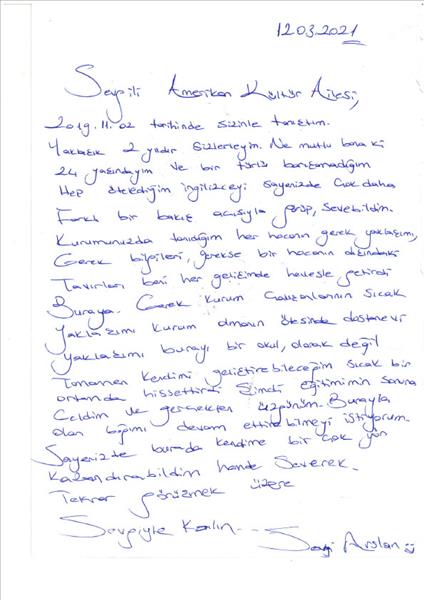 12.03.2021
Sevgili Amerikan Kültür Ailesi,
2019.11.02 tarihinde sizinle tanıştım.
Yaklaşık 2 yıldır sizlerleyim. Ne mutlu bana ki
24 yaşındayım ve bir türlü barışamadığım
Hep ötelediğim ingilizceyi sayenizde Çok daha
Farklı bir bakış açısıyla görüp, sevebildim.
Kurumunuzda tanıdığım her hocanın gerek yaklaşımı,
Gerek bilgileri, gerekse bir hocanın dışındaki
Tavırları beni her gelişimde hevesle getirdi
Buraya. Gerek kurum Çalışanlarının Sıcak
yaklaşımı kurum olmanın ötesinde dostane vi
yaklaşımı burayı bir okul, olarak değil
Tamamen Kendimi geliştirebileceğim sıcak bir
ortamda hissettirdi. Şimdi eğitimimin sonuna
Geldim ve gerçekten üzgünüm. Burayla
olan bağımı devam ettirebilmeyi istiyorum.
Sayenizde burada kendime bir çok yön
Kazandırabildim hemde Severek.
Tekrar görüşmek üzere
Sevgiyle Kalın...
Arslan